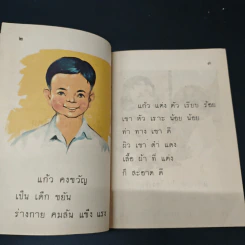 ๒
แก้ว คงขวัญ
เป็น เด็ก ขยัน
ร่างกาย คมสัน แข็ง แรง
๓
แก้ว แดง ตัว เรียบ ร้อย
เขา ตัว เราะ น้อย น้อย
ท่า ทาง เขา ดี
ผิว เขา ดำ แดง
เสื้อ ผ้า ที่ แต่ง
ก็ สะอาด ดี